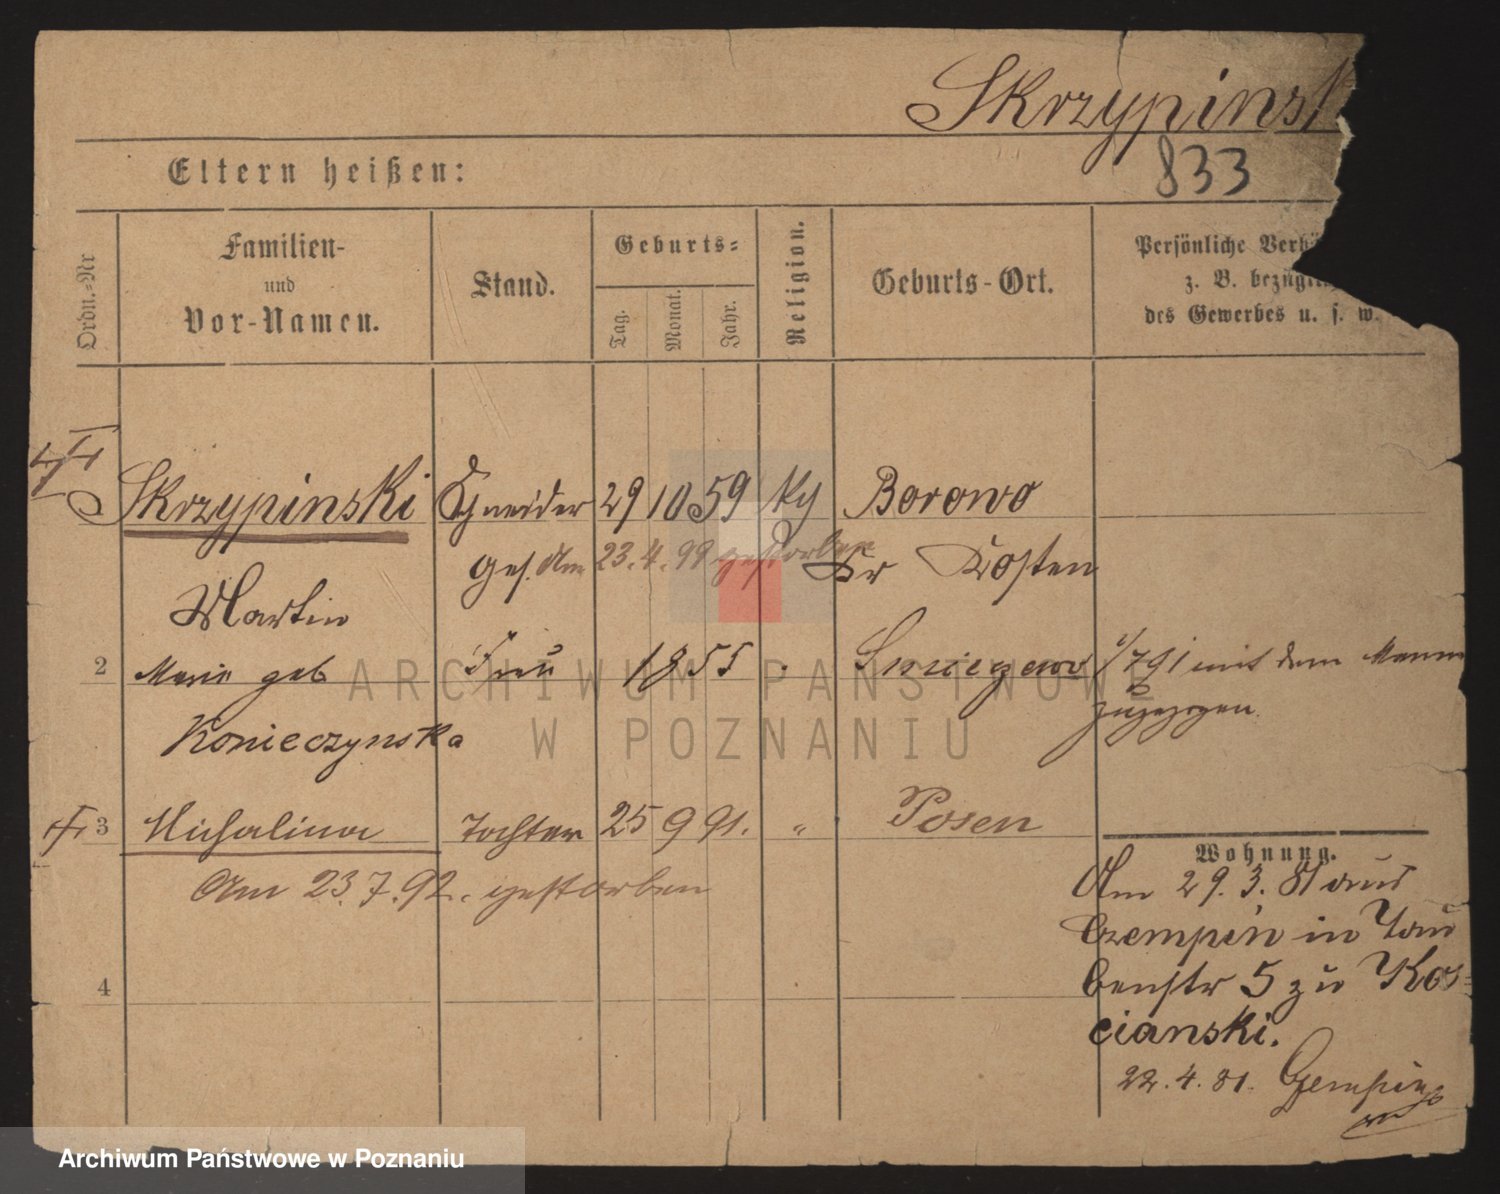 Skrzypinsk
833
Eltern heißen:
Ordn.-Nr
Familien-
und
Vor-Namen.
Stand.
Geburts-
Tag.
Monat.
Jahr.
Religion.
Geburts-Ort.
Persönliche Verhä
z. B. bezügli
des Gewerbes u. s. w.
Skrzypinski Schneider 29 10 59 kg Borowo
ges. Am 23.4.99 gestorben Kr Kosten
Martin
2 Marie geb Frau 1855 7 91 mit dem Mann
zugezogen.
Konieczynska
3 Michalina Tochter 25 9 91. " Posen
Am 23.7.92. gestorben
4
Wohnung.
Am 29.3. 81 aus
Czempin in Tau
benstr 5 zu Kos-
cianski.
22.4.81. Czempin
ARCHIWUM PAŃSTWOWE
W POZNANIU
Archiwum Państwowe w Poznaniu